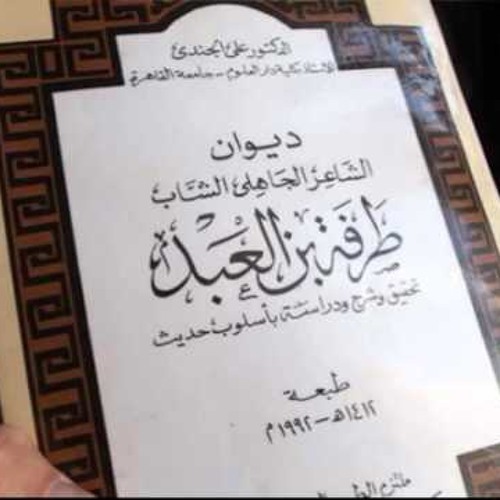 الدكتور على الجندى
الأستاذ بكلية دار العلوم - جامعة القاهرة
ديوان
الشاعر الجاهلى الشاب
طرفة بن العبد
تحقيق وشرح ودراسة بأسلوب حديث
طبعة
١٤١٢هـ - ١٩٩٢م
ملتزم